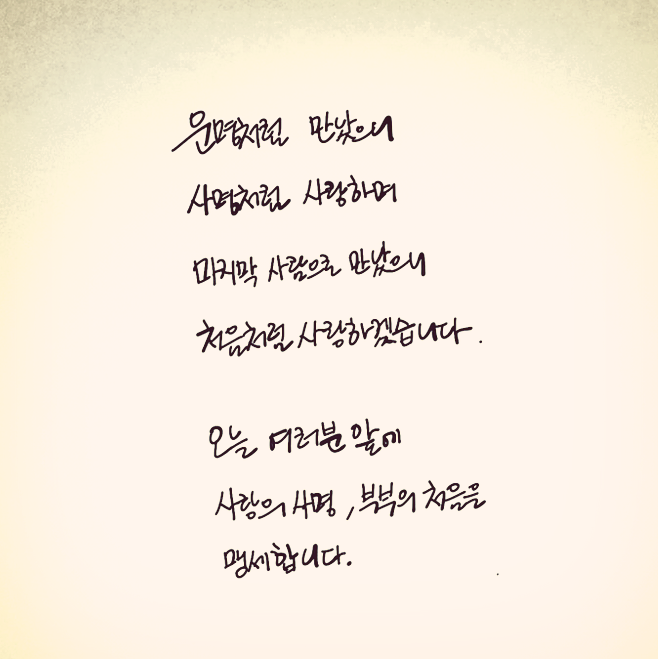 운명처럼 만났으니
사명처럼 사랑하며
마지막 사람으로 만났으니
처음처럼 사랑하겠습니다.
오늘 여러분 앞에
사랑의 사명, 부부의 처음을
맹세합니다.